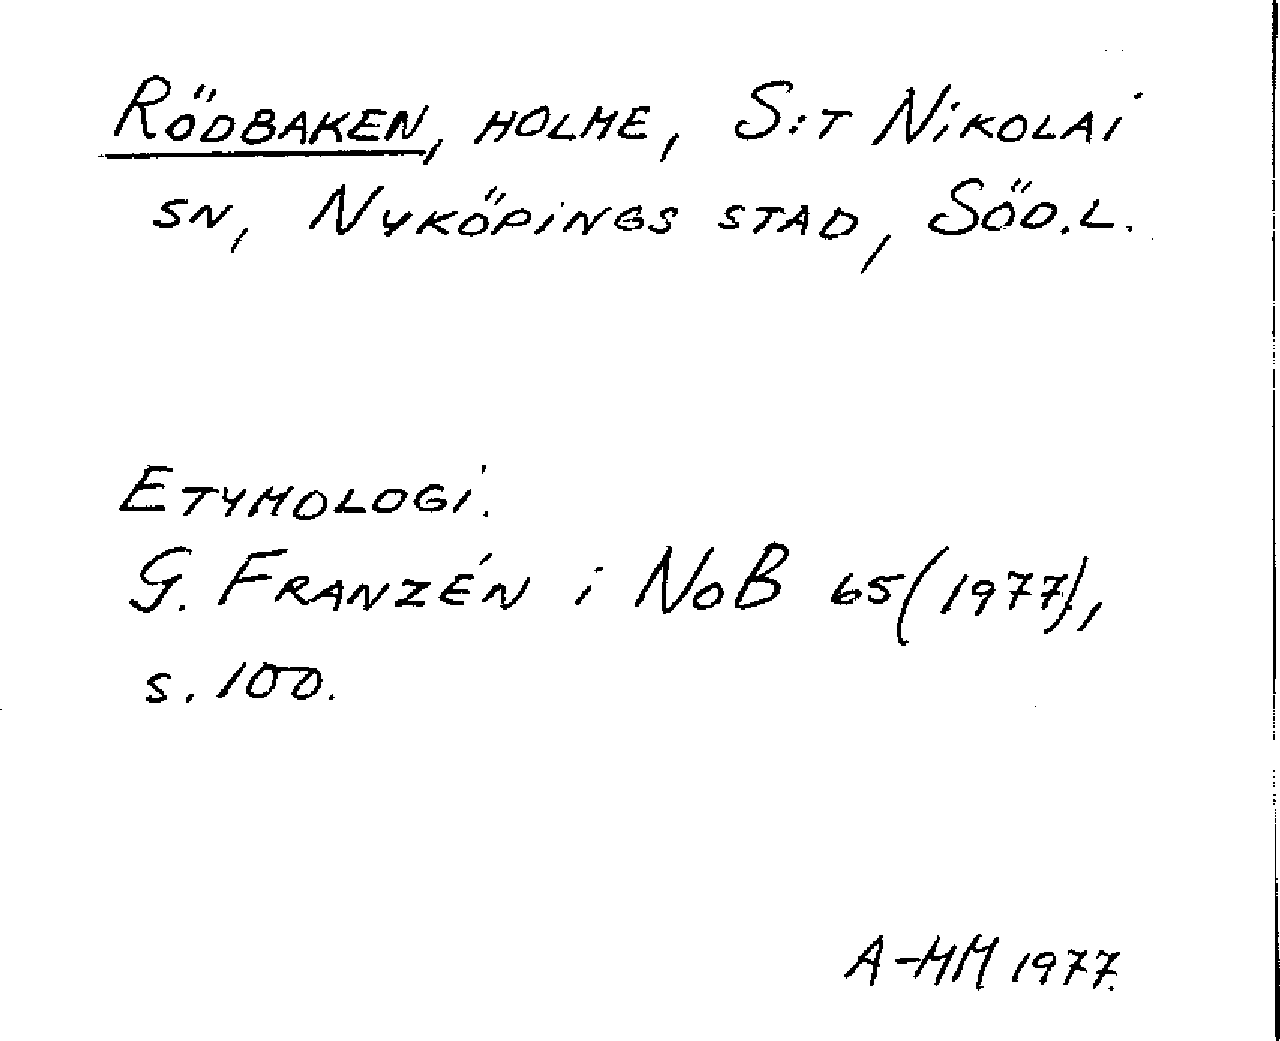 RÖDBAKEN, HOLME, S:T NIKOLAI
SN, NYKÖPINGS STAD, SÖD.L.
ETYMOLOGI.
G. FRANZÉN i NoB 65(1977),
S. 100.
A-HM 1977.